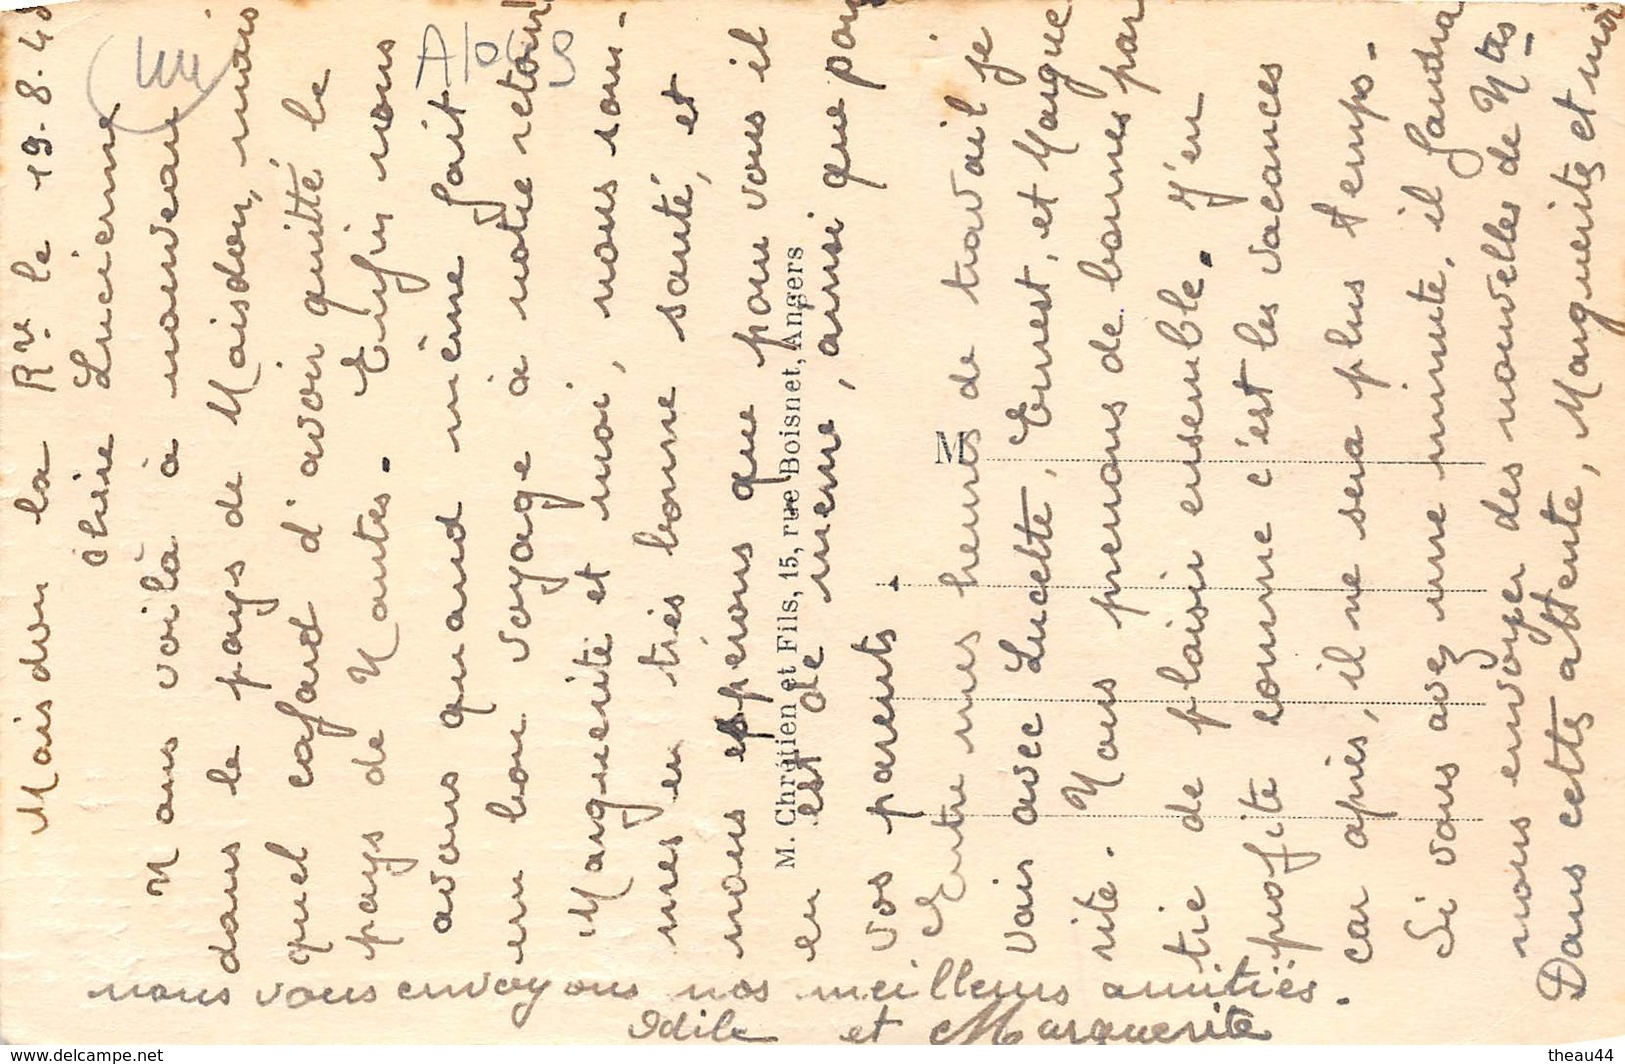 Maisdon la Rv. le 19.8.4
Chère Lucienne
Nous voilà à nouveau
dans le pays de Maisdon, mais
quel cafard d'avoir quitté le
pays de Nantes. Enfin nous
avons quand même fait
un bon voyage à notre retour
Marguerite et moi, nous som-
mes en très bonne santé, et
nous espérons que pour vous il
en est de même, ainsi que pour
vos parents.
Entre mes heures de travail je
vais avec Lucette, Ernest, et Margue
rite. Nous prenons de bonnes par
tie de plaisir ensemble. J'en
profite comme c'est les vacances
car après, il ne sera plus temps.
Si vous avez une minute, il faudra
nous envoyer des nouvelles de Ntes
Dans cette attente, Marguerite et moi
nous vous envoyons nos meilleurs amitiés.
Odile et Marguerite
M. Chrétien et Fils, 15, rue Boisnet, Angers
M
www.delcampe.net
theau44